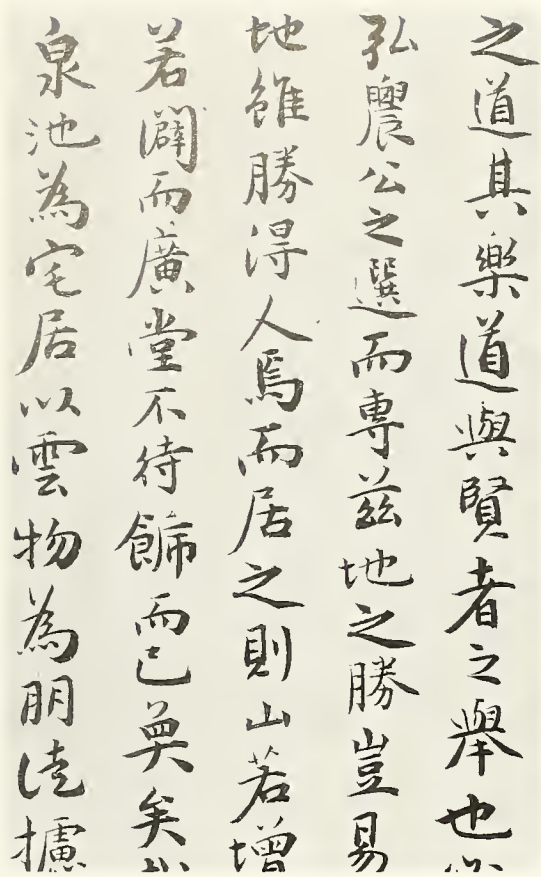 之道其樂道與賢者之舉也
弘農公之選而專茲地之勝豈易
地雖勝得人焉而居之則山若增
若闢而廣堂不待飾而已奐矣
泉池為宅居以雲物為朋徒攄